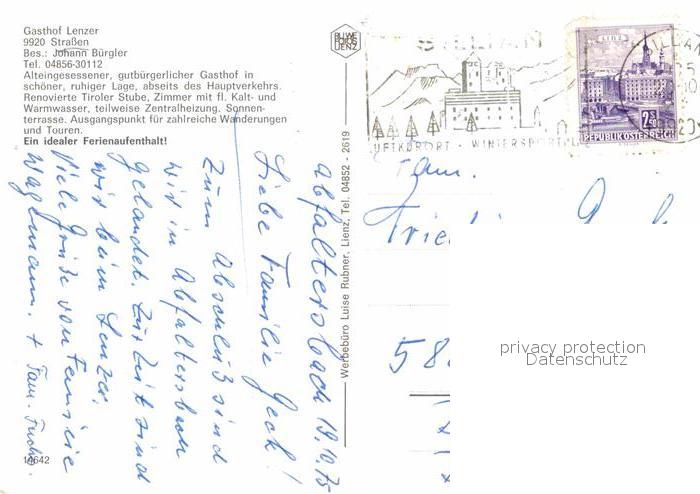 Gasthof Lenzer
9920 Straßen
Bes.: Johann Bürgler
Tel. 04856-30112
Alteingesessener, gutbürgerlicher Gasthof in
schöner, ruhiger Lage, abseits des Hauptverkehrs.
Renovierte Tiroler Stube, Zimmer mit fl. Kalt- und
Warmwasser, teilweise Zentralheizung. Sonnen-
terrasse. Ausgangspunkt für zahlreiche Wanderungen
und Touren.
Ein idealer Ferienaufenthalt!
Abfaltersbach 19.10.75
Liebe Familie Geck!
Zum Abschluß sind
wir in Abfaltersbach
gelandet. Zur Zeit sind
wir beim Lenzer.
Viele Grüße von Familie
Wagemann. + Fam. Fuchs.
14642
Werbebüro Luise Rubner, Lienz, Tel. 04852 - 2619
LUFTKURORT - WINTERSPORT
LINZ
2.50
REPUBLIK ÖSTERREICH
Fam.
58
privacy protection
Datenschutz